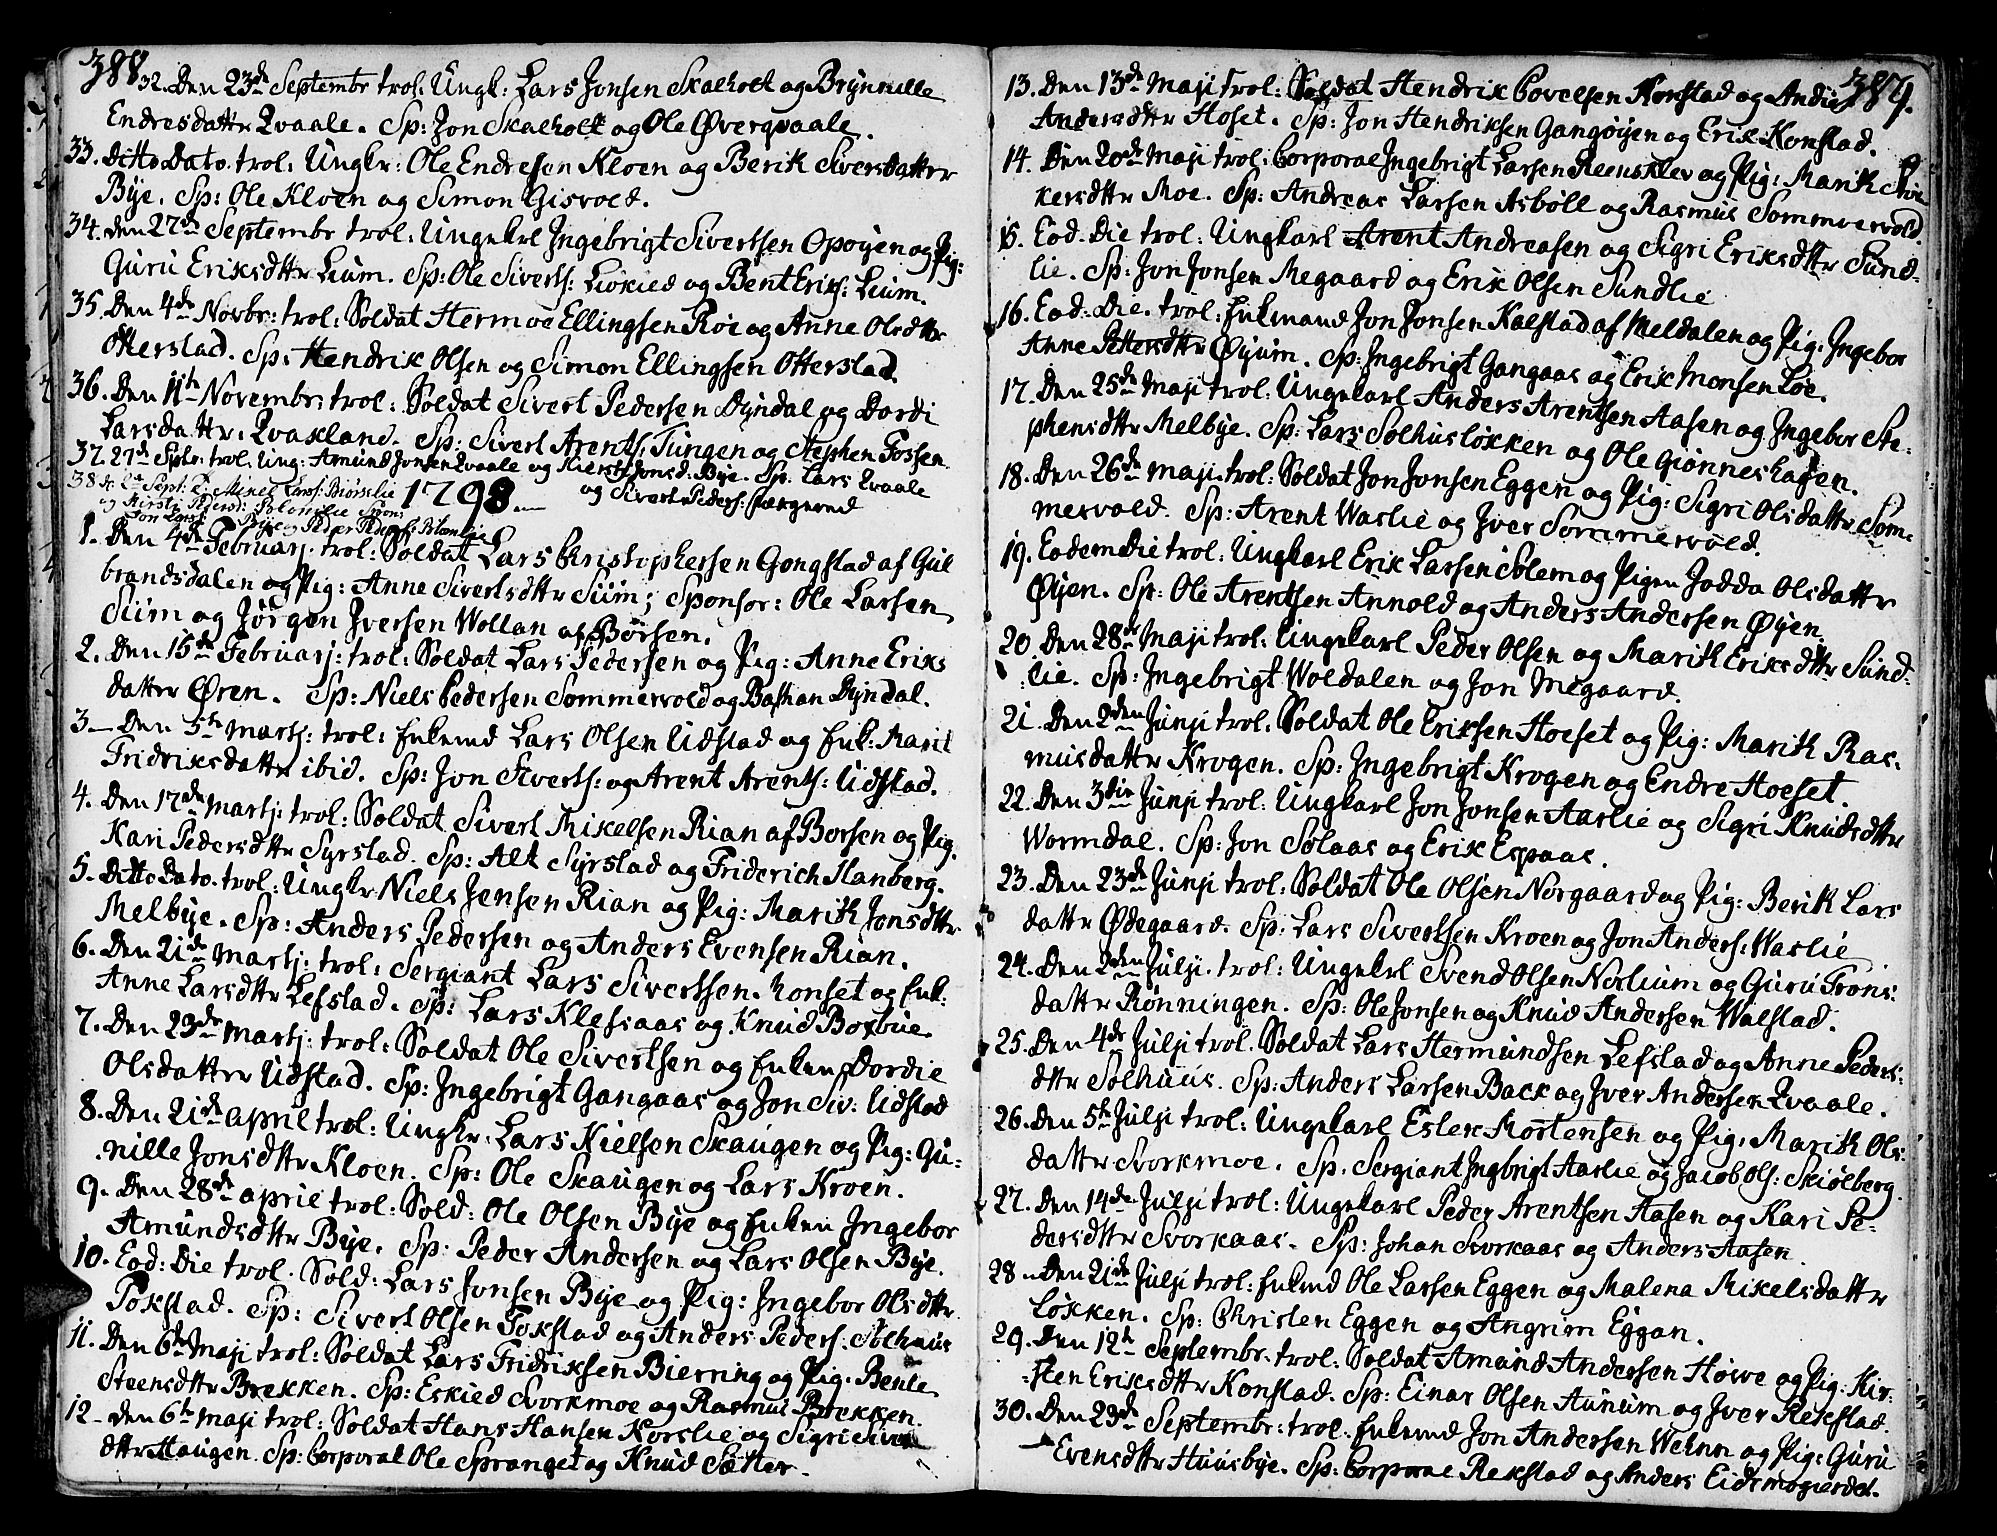 388
32. Den 23de Septembr trol: Ungk: Lars Jonsen Skalholt og Brynnille
Endresdattr Qvaale. Sp: Jon Skalholt og Ole Øverqvaale.
33. Ditto Dato. trol: Ungkr: Ole Endresen Kloen og Berit Siversdatter
Bye. Sp: Ole Kloen og Simon Gisvold.
34. den 27de Septembr trol: Ungekrl Ingebrigt Sivertsen Opøyen og Pig:
Guru Eriksdttr Lium. Sp: Ole Siverts: Løkied og Bent Eriks: Lium.
35. Den 4de Novbr: trol: Soldat Hermoe Ellingsen Roe og Anne Olsdttr
Otterstad. Sp: Hendrik Olsen og Simon Ellingsen Otterstad.
36. Den 11th Novembr: trol: Soldat Sivert Pedersen Dyndal og Dordi
Larsdattr. Qvakland. Sp: Sivert Arents: Tungen og Stephen Fossen
37. 27de Septr. trol. Ung: Amund Jonsen Qvaale og Kiersti Jonsd: Bye. Sp. Lars Qvaale
og Sivert Peders:
38. d. 2de Sept: T: Mikel Lars: Biørslie
og Kirsti Pedersd:
Jon Lars: Bye og Peder Peders:
1798.
1. Den 4de Februarj. trol: Soldat Lars Christophersen Gongstad af Gul
brandsdalen og Pig: Anne Sivertsdttr Sum; Sponsor: Ole Larsen
Sum og Jørgen Iversen Wollan af Børsen.
2. Den 15de Februarj: trol: Soldat Lars Pedersen og Pig: Anne Eriks
datter Øren. Sp: Niels Pedersen Sommervold og Bastian Dyndal.
3 Den 5th Martj: trol: Enkemd Lars Olsen Udstad og Enk: Marit
Fridriksdattr ibid. Sp: Jon Siverts: og Arent Arents: Udstad.
4. Den 17de Martj: trol: Soldat Sivert Mikelsen Rian af Borsen og Pig.
Kari Pedersdttr Syrstad. Sp: Alt Syrstad og Friderich Hanberg.
5. Ditto Dato. trol: Ungkr Niels Jensen Rian og Pig: Marith Jonsdttr
Melbye. Sp: Anders Pedersen og Anders Evensen Rian.
6. Den 21de Martj: trol: Sergiant Lars Sivertsen Ronset og Enk:
Anne Larsdttr Lefstad. Sp: Lars Klefsaas og Knud Bosbue
7. Den 23de Martj: trol: Soldat Ole Sivertsen og Enken Dordie
Olsdatter Udstad. Sp: Ingebrigt Gangaas og Jon Siv: Udstad
8. Den 21de april trol: Ungkr. Lars Nielsen Skaugen og Pig: Gu-
nille Jonsdttr Kloen. Sp: Ole Skaugen og Lars Kroen.
9. Den 28de april trol: Sold: Ole Olsen Bye og Enken Ingebor
Amundsdttr Bye. Sp: Peder Andersen og Lars Olsen Bye.
10. Eod: Die trol. Sold: Lars Jonsen Bye og Pig: Ingebor Olsdttr
Tokstad. Sp: Sivert Olsen Tokstad og Anders Peders. Solhuus
11. Den 6th Maji trol: Soldat Lars Fridriksen Bierring og Pig. Bente
Steensdttr Brekken. Sp: Eskied Svorkmoe og Rasmus Brekken.
12 Den 6th Maji trol: Soldat Hans Hansen Korslie og Sigri Sivers
dttr Haugen. Sp: Corporal Ole Spranget og Knud Sætter.
389.
13. Den 13de Maji trol: Soldat Hendrik Povelsen Konstad og Andie
Andersdttr Hoset. Sp: Jon Hendriksen Gangøyen og Erik Konstad.
14. Den 20de Maji trol: Corporal Ingebrigt Larsen Reensklev og Pig: Marith
kersdttr Moe. Sp: Andreas Larsen Asboll og Rasmus Sommervold.
15. Eod. Die trol: Ungkarl Arent Andreasen og Sigri Eriksdttr Sund-
lie. Sp: Jon Jonsen Megaard og Erik Olsen Sundlie
16. Eod: Die. trol: Enkmand Jon Jonsen Kalstad af Meldalen og Pig: Ingebor
Anne Pettersdttr Øyum. Sp: Ingebrigt Gangaas og Erik Monsen Loe.
17. Den 25de Maji trol: Ungekarl Anders Arentsen Aasen og Ingebor Ste-
phensdttr Melbye. Sp: Lars Solhusløkken og Ole Giønneshagen.
18. Den 26de Maji. trol: Soldat Jon Jonsen Eggen og Pig: Sigri Olsdattr Som-
mervold. Sp: Arent Waslie og Iver Sommervold.
19. Eodem Die trol: Ungkarl Erik Larsen Solem og Pigen Jodda Olsdattr
Øyen. Sp: Ole Arentsen Annold og Anders Andersen Øyen.
20. Den 28de Maji trol: Ungekarl Peder Olsen og Marith Eriksdttr Sund-
lie. Sp: Ingebrigt Woldalen og Jon Megaard.
21. Den 2den Junji trol: Soldat Ole Eriksen Hoeset og Pig: Marith Ras-
musdatter Krogen. Sp: Ingebrigt Krogen og Endre Hoeset.
22. Den 3die Junji trol: Ungkarl Jon Jonsen Aaslie og Sigri Knudsdttr
Wormdal. Sp: Jon Solaas og Erik Espaas.
23. Den 23de Junji trol: Soldat Ole Olsen Norgaard og Pig: Berith Lars
dattr Ødegaard. Sp: Lars Sivertsen Kroen og Jon Anders: Waslie
24. Den 2den Julji. trol: Ungekrl Svend Olsen Norlium og Guru Trons:
dattr Rønningen. Sp: Ole Jonsen og Knud Andersen Walstad.
25. Den 4de Julji trol. Soldat Lars Hermundsen Lefstad og Anne Peders:
dttr Solhuus. Sp: Anders Larsen Back og Iver Andersen Qvaale.
26. Den 5th Julji trol: Ungekarl Esler Mortensen og Pig: Marith Ols:
dattr Svorkmoe. Sp. Sergiant Ingbrigt Aarlie og Jacob Ols: Skiølberg.
27. Den 14de Julji trol: Ungekarl Peder Arentsen Aasen og Kari Pe-
dersdttr Svorkaas. Sp: Johan Svorkaas og Anders Aasen
28 Den 21de Julji trol: Enkemd Ole Larsen Eggen og Malena Mikelsdattr
Løkken. Sp: Christen Eggen og Angrim Eggan.
29. Den 12th Septembr. trol: Soldat Amund Andersen Howe og Pig: Kir-
sten Eriksdttr Konstad. Sp: Einar Olsen Aunum og Iver Rekstad.
30. Den 23de Septembr: trol. Enkemd Jon Andersen Wehnn og Pig: Guru
Evensdttr Huusbye. Sp: Corporal Rekstad og Anders Eidsmogierdet.